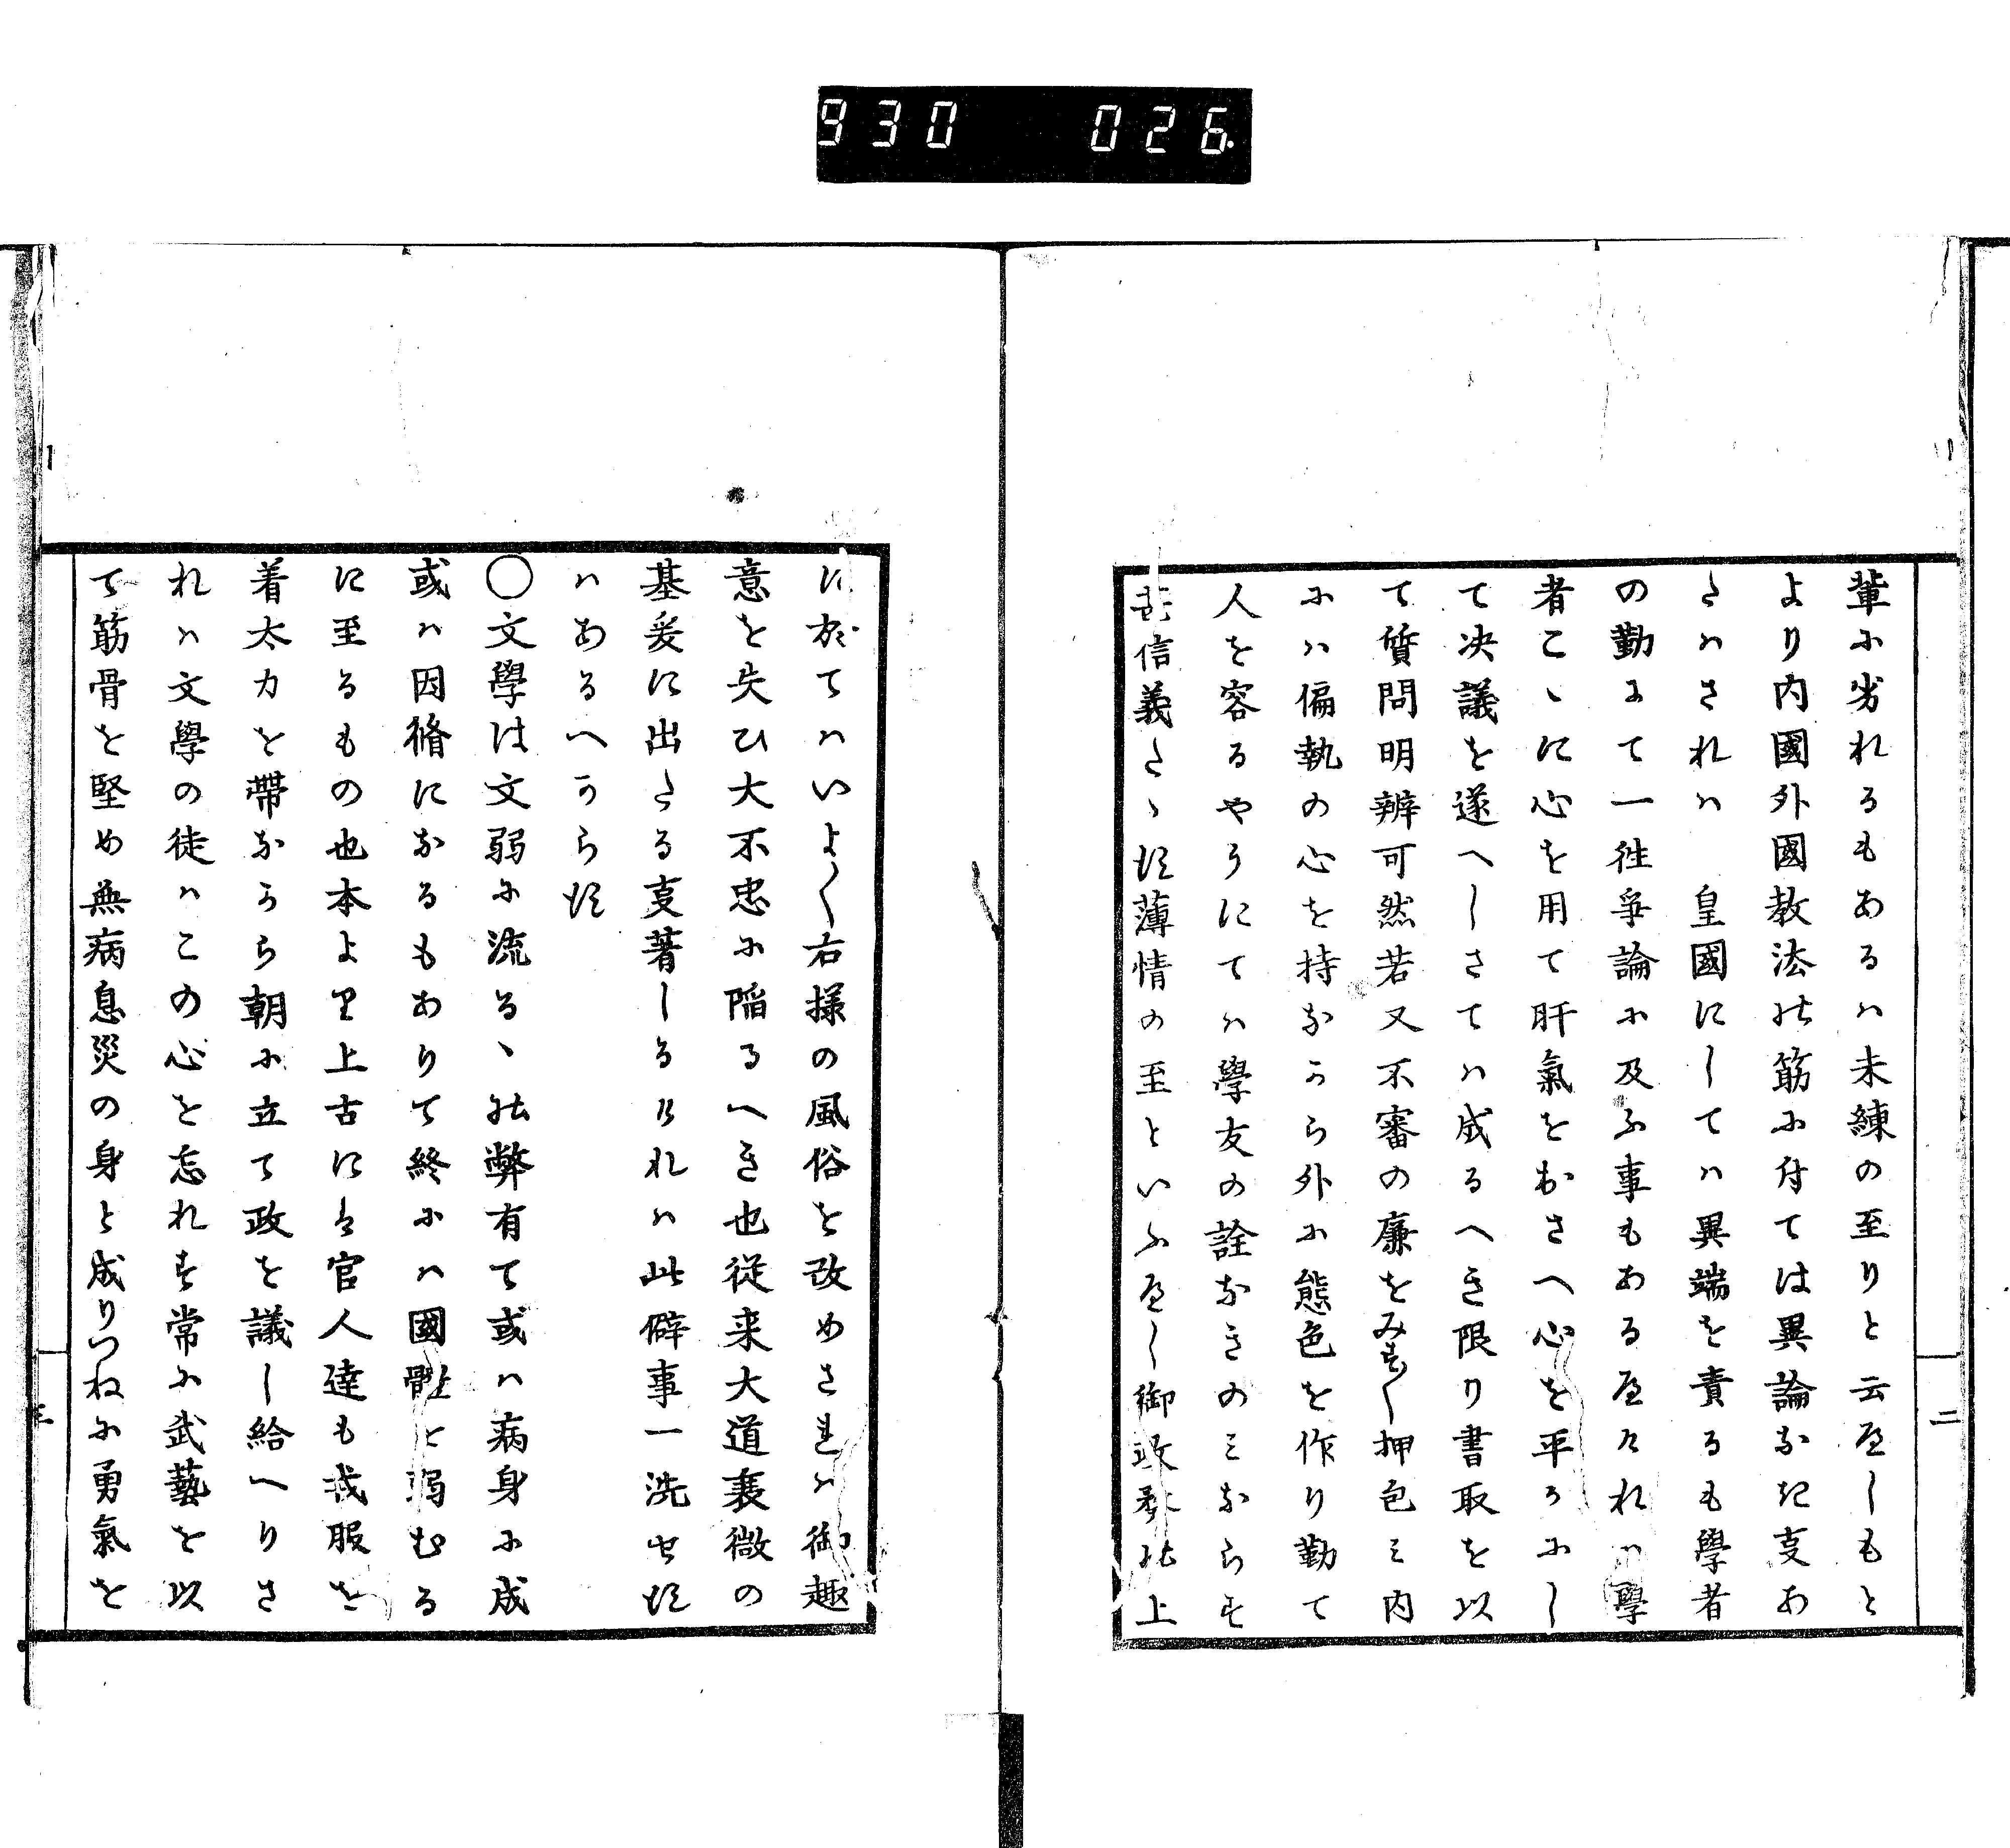 930 026
輩に劣れるもあるハ未練の至りと云へしもと
より内國外國教法の筋に付ては異論なき支あ
たはされハ 皇國にしてハ異端を責るも學者
の勤にて一往爭論に及ふ事もあるへけれハ學
者こゝに心を用て肝氣をおさへ心を平らにし
て决議を遂へしさてハ成るへき限り書取を以
て質問明辨可然若又不審の廉をみす〱押包ミ内
にハ偏執の心を持なから外に態色を作り勤て
人を容るやうにてハ學友の詮なきのミならす
信義たゝす薄情の至といふへし御政の上
二
に於てハいよ〱右様の風俗を改めされハ御趣
意を失ひ大不忠に陥るへき也従来大道衰微の
基爰に出たる支著しるけれハ此僻事一洗せす
ハあるへからす
〇文學は文弱に流るゝの弊有て或ハ病身に成
或ハ因循になるもありて終にハ國軆を弱むる
に至るもの也本より上古にハ官人達も戎服を
着太刀を帶なから朝に立て政を議し給へりさ
れハ文學の徒ハこの心を忘れす常に武藝を以
て筋骨を堅め無病息災の身と成りつねに勇氣を
三